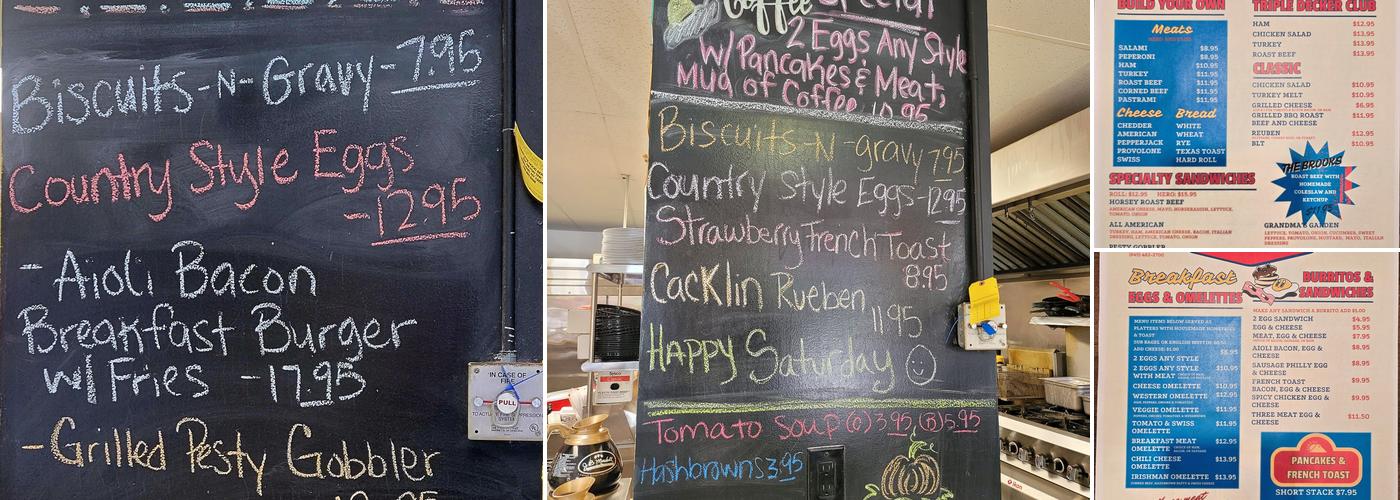 Biscuits-N-Gravy-7.95
Country Style Eggs
-12.95
-Aioli Bacon
Breakfast Burger
w/ Fries -17.95
-Grilled Pesty Gobbler
IN CASE OF
FIRE
PULL
Coffee Special
2 Eggs Any Style
w/ Pancakes & Meat,
Mug of Coffee 10.95
Biscuits-N-gravy 7.95
Country Style Eggs-12.95
Strawberry French Toast
8.95
Cacklin Rueben
11.95
Happy Saturday
Tomato Soup (c) 3.95, (B) 5.95
Hashbrowns 3.95
BUILD YOUR OWN
Meats
SALAMI $8.95
PEPERONI $8.95
HAM $10.95
TURKEY $11.95
ROAST BEEF $11.95
CORNED BEEF $11.95
PASTRAMI $11.95
Cheese Bread
CHEDDER WHITE
AMERICAN WHEAT
PEPPERJACK RYE
PROVOLONE TEXAS TOAST
SWISS HARD ROLL
SPECIALTY SANDWICHES
ROLL: $12.95 HERO: $15.95
HORSEY ROAST BEEF
AMERICAN CHEESE, MAYO, HORSERADISH, LETTUCE,
TOMATO, ONION
ALL AMERICAN
TURKEY, HAM, AMERICAN CHEESE, BACON, ITALIAN
DRESSING, LETTUCE, TOMATO, ONION
PESTY GOBBLER
TRIPLE DECKER CLUB
HAM $12.95
CHICKEN SALAD $13.95
TURKEY $13.95
ROAST BEEF $13.95
CLASSIC
CHICKEN SALAD $10.95
TURKEY MELT $10.95
GRILLED CHEESE $6.95
GRILLED BBQ ROAST $11.95
BEEF AND CHEESE
REUBEN $12.95
BLT $10.95
THE BROOKS
ROAST BEEF WITH
HOMEMADE
COLESLAW AND
KETCHUP
$11.95
GRANDMA'S GARDEN
LETTUCE, TOMATO, ONION, CUCUMBER, SWEET
PEPPERS, PROVOLONE, MUSTARD, MAYO, ITALIAN
DRESSING
Breakfast
EGGS & OMELETTES
MENU ITEMS BELOW SERVED AS
PLATTERS WITH HOUSEMADE HOMEFRIES
& TOAST
SUB BAGEL OR ENGLISH MUFFIN $0.50
ADD CHEESE $1.00
2 EGGS ANY STYLE $8.95
2 EGGS ANY STYLE $10.95
WITH MEAT
CHEESE OMELETTE $10.95
WESTERN OMELETTE $12.95
VEGGIE OMELETTE $11.95
TOMATO & SWISS $11.95
OMELETTE
BREAKFAST MEAT $12.95
OMELETTE
CHILI CHEESE $13.95
OMELETTE
IRISHMAN OMELETTE $13.95
BURRITOS &
SANDWICHES
MAKE ANY SANDWICH A BURRITO ADD $1.00
2 EGG SANDWICH $4.95
EGG & CHEESE $5.95
MEAT, EGG & CHEESE $7.95
AIOLI BACON, EGG & $8.95
CHEESE
SAUSAGE PHILLY EGG $8.95
& CHEESE
FRENCH TOAST $9.95
BACON, EGG & CHEESE
SPICY CHICKEN EGG & $9.95
CHEESE
THREE MEAT EGG & $11.50
CHEESE
PANCAKES &
FRENCH TOAST
SHORT STACK $7.95